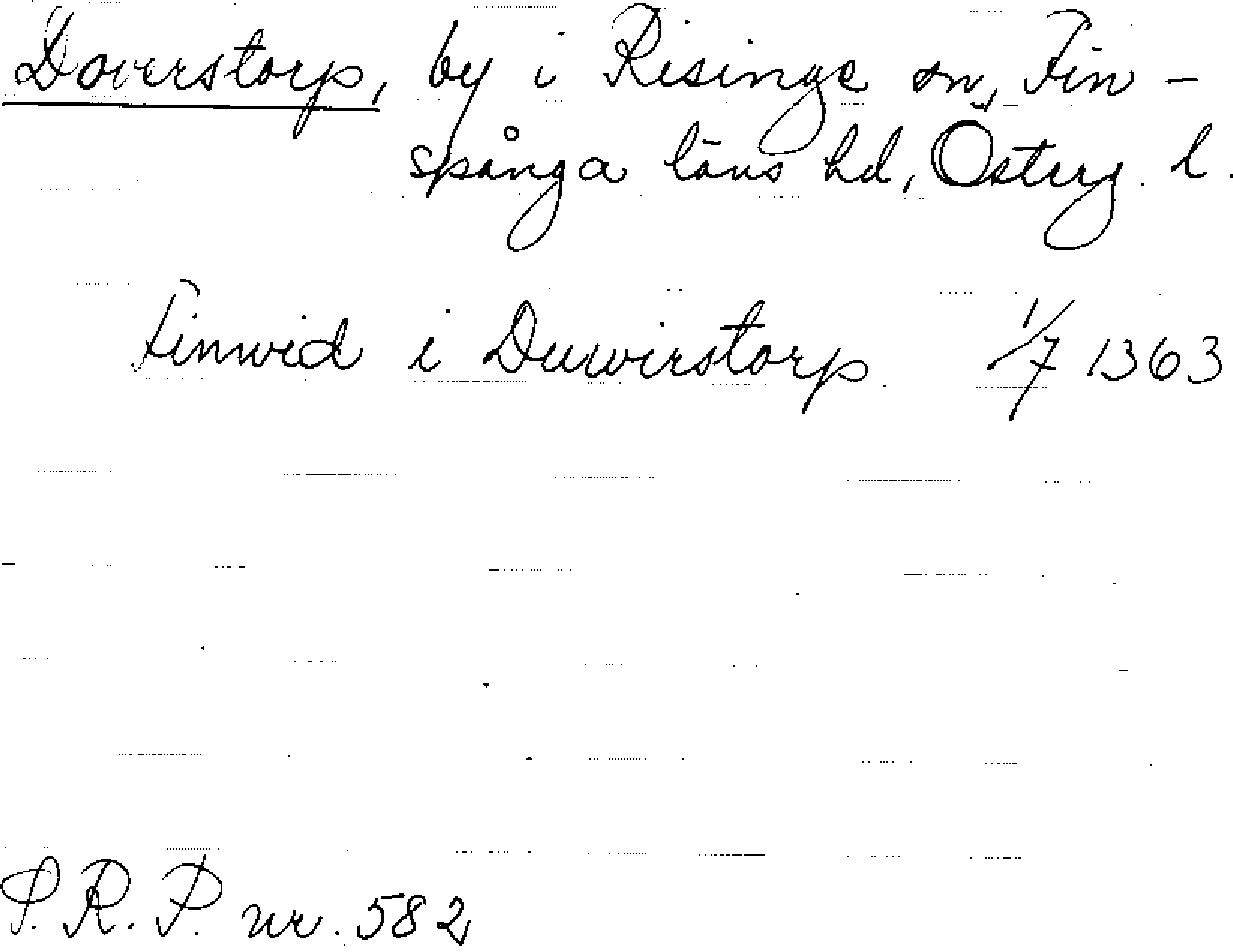 Doverstorp, by i Risinge sn, Fin-
spånga läns hd, Österg. l.
Finwid i Duwirstorp. 1/7 1363
S.R.P. nr. 582